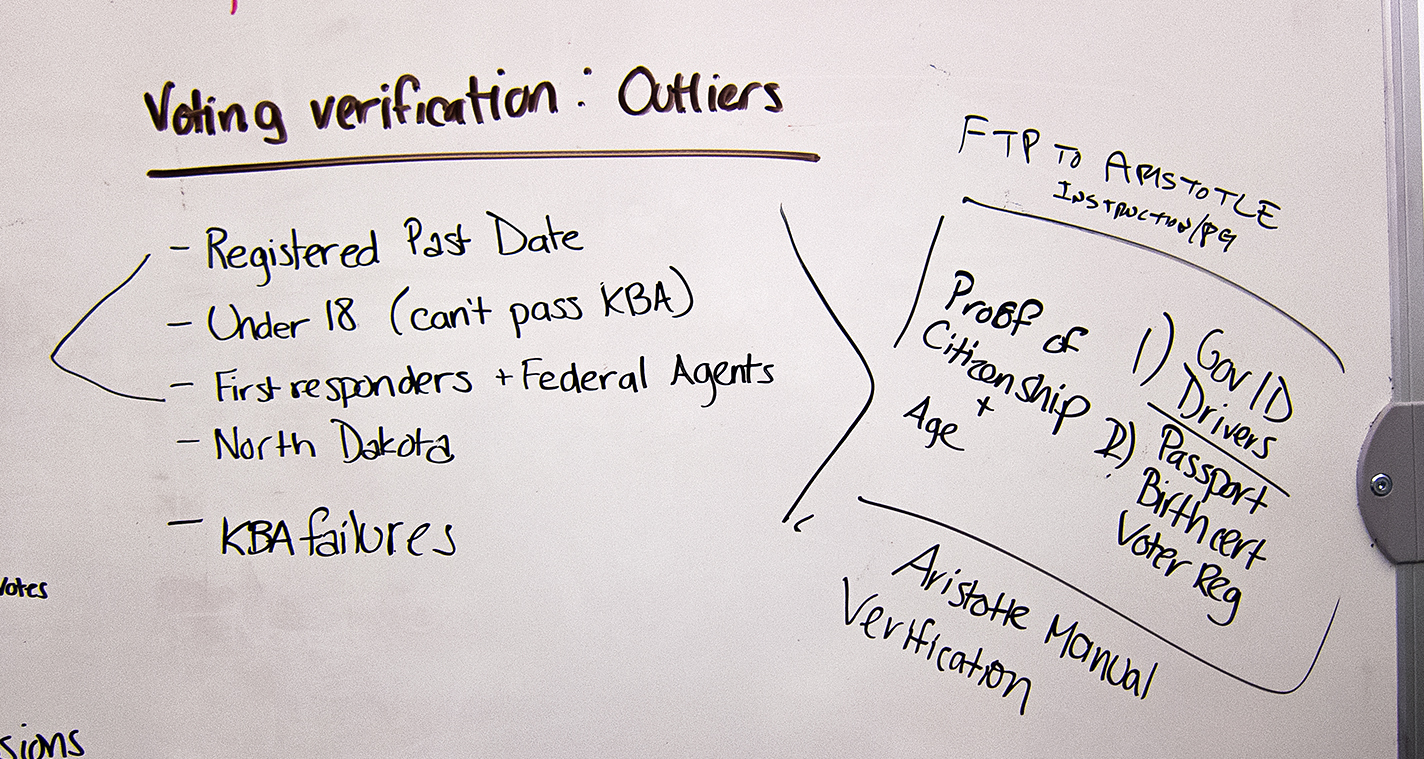 Voting verification: Outliers
- Registered Past Date
- Under 18 (can't pass KBA)
- First responders + Federal Agents
- North Dakota
- KBA failures
Votes
sions
FTP TO ARISTOTLE
Proof of
Citizenship
+
Age
1) Gov ID
Drivers
2) Passport
Birth cert
Voter Reg
Aristotle Manual
Verification